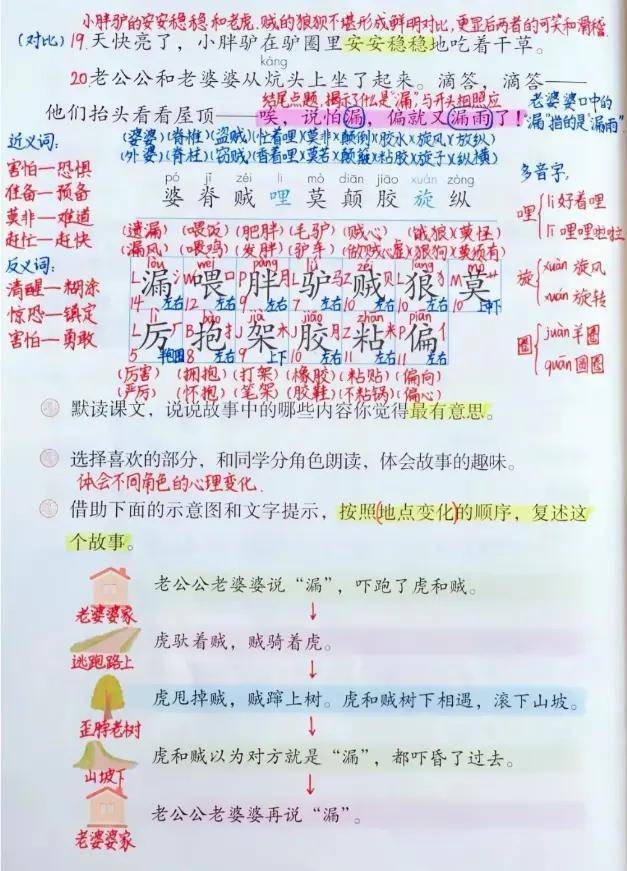 小胖驴的安安稳稳和老虎.贼的狼狈不堪形成鲜明对比,更显后两者的可笑和滑稽.
(对比) 19.天快亮了,小胖驴在驴圈里安安稳稳地吃着干草。
kàng
20.老公公和老婆婆从炕头上坐了起来。滴答,滴答——
结尾点题,揭示了什么是“漏”,与开头相照应
他们抬头看看屋顶——唉,说怕漏,偏就又漏雨了!
老婆婆口中的
“漏”指的是“漏雨”.
近义词:
害怕—恐惧
准备—预备
莫非—难道
赶忙—赶快
反义词:
清醒—糊涂
惊恐—镇定
害怕—勇敢
(婆婆)(脊椎)(盗贼)(忙着哩)(莫非)(颠倒)(胶水)(旋风)(放纵)
(外婆)(脊柱)(窃贼)(香着哩)(莫若)(颠簸)(粘胶)(旋子)(纵横)
pó jǐ zéi li mò diān jiāo xuàn zòng
婆 脊 贼 哩 莫 颠 胶 旋 纵
(遗漏)(喂饭)(肥胖)(毛驴)(贼心)(饿狼)(莫怪)
(漏风)(喂鸡)(发胖)(驴车)(做贼心虚)(狼狗)(莫须有)
lòu wèi pàng lǘ zéi láng mò
漏 喂 胖 驴 贼 狼 莫
14 左右 12 左右 9 左右 7 左右 10 左右 10 左右 10 上中下
lì bào jià jiāo zhān piān
厉 抱 架 胶 粘 偏
5 半包围 8 左右 9 上下 10 左右 11 左右 11 左右
(厉害)(拥抱)(打架)(橡胶)(粘贴)(偏向)
(严厉)(怀抱)(笔架)(胶鞋)(不粘锅)(偏心)
多音字:
哩 li 好着哩
lī 哩哩啦啦
旋 xuàn 旋风
xuán 旋转
圈 juàn 羊圈
quān 圆圈
默读课文,说说故事中的哪些内容你觉得最有意思。
选择喜欢的部分,和同学分角色朗读,体会故事的趣味。
体会不同角色的心理变化.
借助下面的示意图和文字提示,按照(地点变化)的顺序,复述这
个故事。
老公公老婆婆说“漏”,吓跑了虎和贼。
老婆婆家
虎驮着贼,贼骑着虎。
逃跑路上
虎甩掉贼,贼蹿上树。虎和贼树下相遇,滚下山坡。
歪脖老树
虎和贼以为对方就是“漏”,都吓昏了过去。
山坡下
老公公老婆婆再说“漏”。
老婆婆家